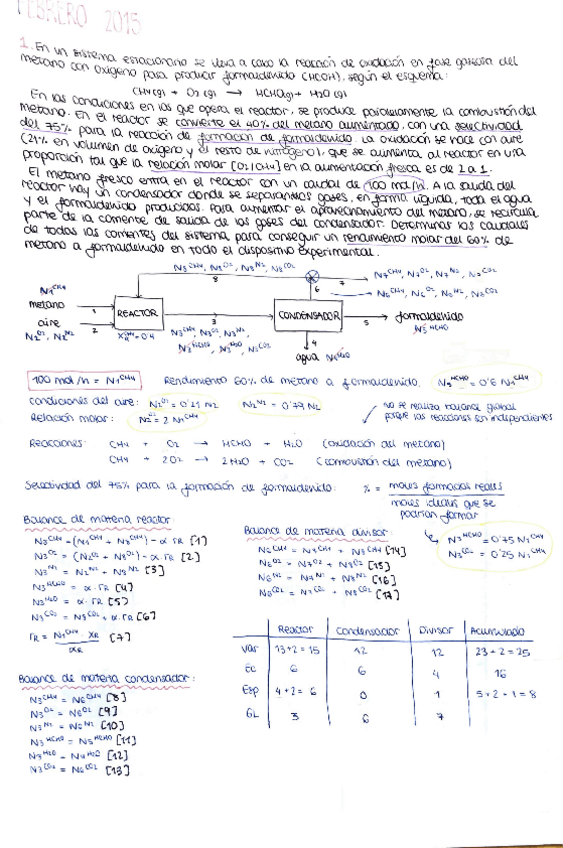 FEBRERO 2015
1. En un sistema estacionario se lleva a cabo la reacción de oxidación en fase gaseosa del
metano con oxígeno para producir formaldehído (HCOH), según el esquema:
CH4(g) + O2(g) → HCHO(g) + H2O(g)
En las condiciones en las que opera el reactor, se produce paralelamente la combustión del
metano. En el reactor se convierte el 40% del metano alimentado, con una selectividad
del 75% para la reacción de formación de formaldehído. La oxidación se hace con aire
(21% en volumen de oxígeno y el resto de nitrógeno), que se alimenta al reactor en una
proporción tal que la relación molar [O2/CH4] en la alimentación fresca es de 2 a 1.
El metano fresco entra en el reactor con un caudal de 100 mol/h. A la salida del
reactor hay un condensador donde se separan los gases, en forma líquida, toda el agua
y el formaldehído producidos. Para aumentar el aprovechamiento del metano, se recircula
parte de la corriente de salida de los gases del condensador. Determinar los caudales
de todas las corrientes del sistema para conseguir un rendimiento molar del 60% de
metano a formaldehído en todo el dispositivo experimental.
N8CH4, N8O2, N8N2, N8CO2
8
7
N7CH4, N7O2, N7N2, N7CO2
6
N6CH4, N6O2, N6N2, N6CO2
N1CH4
metano
1
aire
2
N2O2, N2N2
REACTOR
3
N3CH4, N3O2, N3N2,
N3HCHO, N3H2O, N3CO2
CONDENSADOR
5
formaldehído
N5HCHO
4
agua N4H2O
100 mol/h = N1CH4
Rendimiento 60% de metano a formaldehído.
N5HCHO = 0'6 N1CH4
Condiciones del aire: N2O2 = 0'21 N2
N2N2 = 0'79 N2
Relación molar: N2O2 = 2 N1CH4
no se realiza balance global
porque las reacciones son independientes
Reacciones: CH4 + O2 → HCHO + H2O (oxidación del metano)
CH4 + 2O2 → 2H2O + CO2 (combustión del metano)
Selectividad del 75% para la formación de formaldehído: % = moles formados reales
moles ideales que se
podrían formar
N3HCHO = 0'75 N1CH4
N3CO2 = 0'25 N1CH4
Balance de materia reactor
N3CH4 = (N1CH4 + N8CH4) - α·rR [1]
N3O2 = (N2O2 + N8O2) - α·rR [2]
N3N2 = N2N2 + N8N2 [3]
N3HCHO = α·rR [4]
N3H2O = α·rR [5]
N3CO2 = N8CO2 + α·rR [6]
rR = N1CH4 XR [7]
αR
Balance de materia divisor:
N6CH4 = N7CH4 + N8CH4 [14]
N6O2 = N7O2 + N8O2 [15]
N6N2 = N7N2 + N8N2 [16]
N6CO2 = N7CO2 + N8CO2 [17]
Reactor Condensador Divisor Acumulado
Var 13+2=15 12 12 23+2=25
Ec 6 6 4 16
Esp 4+2=6 0 1 5+2+1=8
GL 3 6 7
Balance de materia condensador:
N3CH4 = N6CH4 [8]
N3O2 = N6O2 [9]
N3N2 = N6N2 [10]
N3HCHO = N5HCHO [11]
N3H2O = N4H2O [12]
N3CO2 = N6CO2 [13]